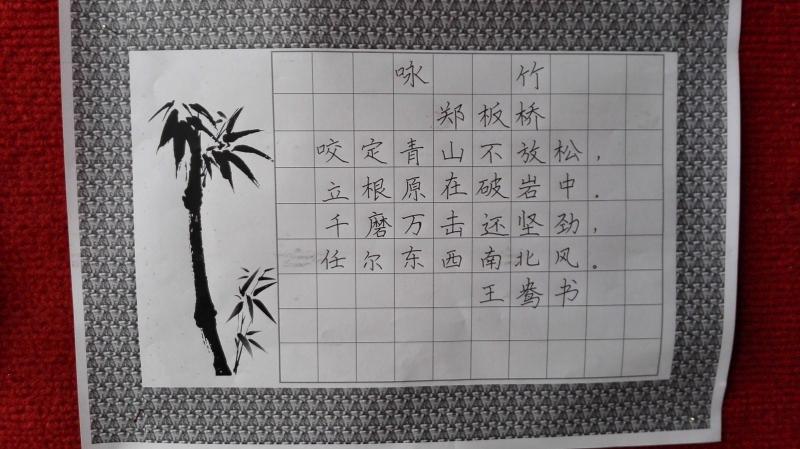 咏竹
郑板桥
咬定青山不放松，
立根原在破岩中．
千磨万击还坚劲，
任尔东西南北风。
王鸯书